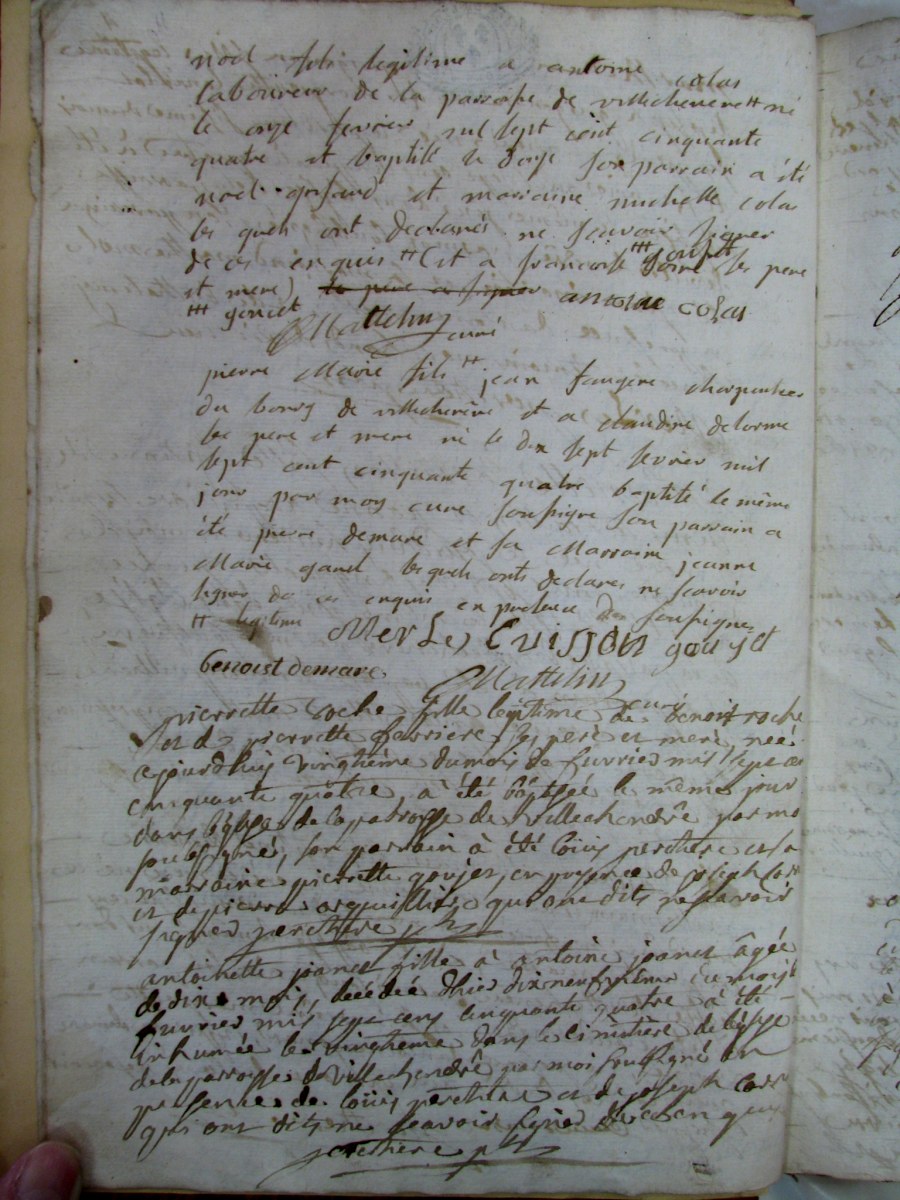 noël fils legitime a antoine colas
laboureur de la paroisse de villechenere tt né
le onze fevrier mil sept cent cinquante
quatre et baptisé le douze son parrain a été
noel et mariaine michelle colas
les quels ont declarés ne scavoir signer
de ce enquis tt (et a francoise ttt ses pere
et mere) le pere a signer antoine colas
ttt goncet
Mattelin curé
pierre Marie fils tt jean faugere charpentier
du bourg de villecheneve et a claudine delorme
ses pere et mere né le dix sept fevrier mil
sept cent cinquante quatre baptisé le même
jour par moy curé soussigné son parrain a
été pierre demare et sa Marraine jeanne
Marie les quels onts declarés ne scavoir
signer de ce enquis en presence des soussignes
tt legitime Merle Cuisson goujet
benoist demare
Mattelin curé
pierrette roche fille legitime de benoit roche
et de pierrette ferriere ses pere et mere, née
cejourdhuy vinghtème du mois de fuvrier mil sept cen
cinquante quatre, a été bátisée le même jour
dans l'église de la parroisse de villechendêve par moi
soussigné, son parrain à été loüis perchere et sa
marraine pierrette goujet, en presence de joseph
et de pierre arquilliere qui ont dits ne scavoir
signer perchere ptr
antoinette fille à antoine âgée
de dix mois, décédée d'hier dixneufvieme du mois
fuvrier mil sept cens cinquante quatre à été
inhumée le vinghtème dans le cimitière de l'église
de la parroisse de villechendêve par moi soussigné en
presence de loüis perchere et de joseph
qui ont dits ne scavoir signer de ce en quis
perchere ptr